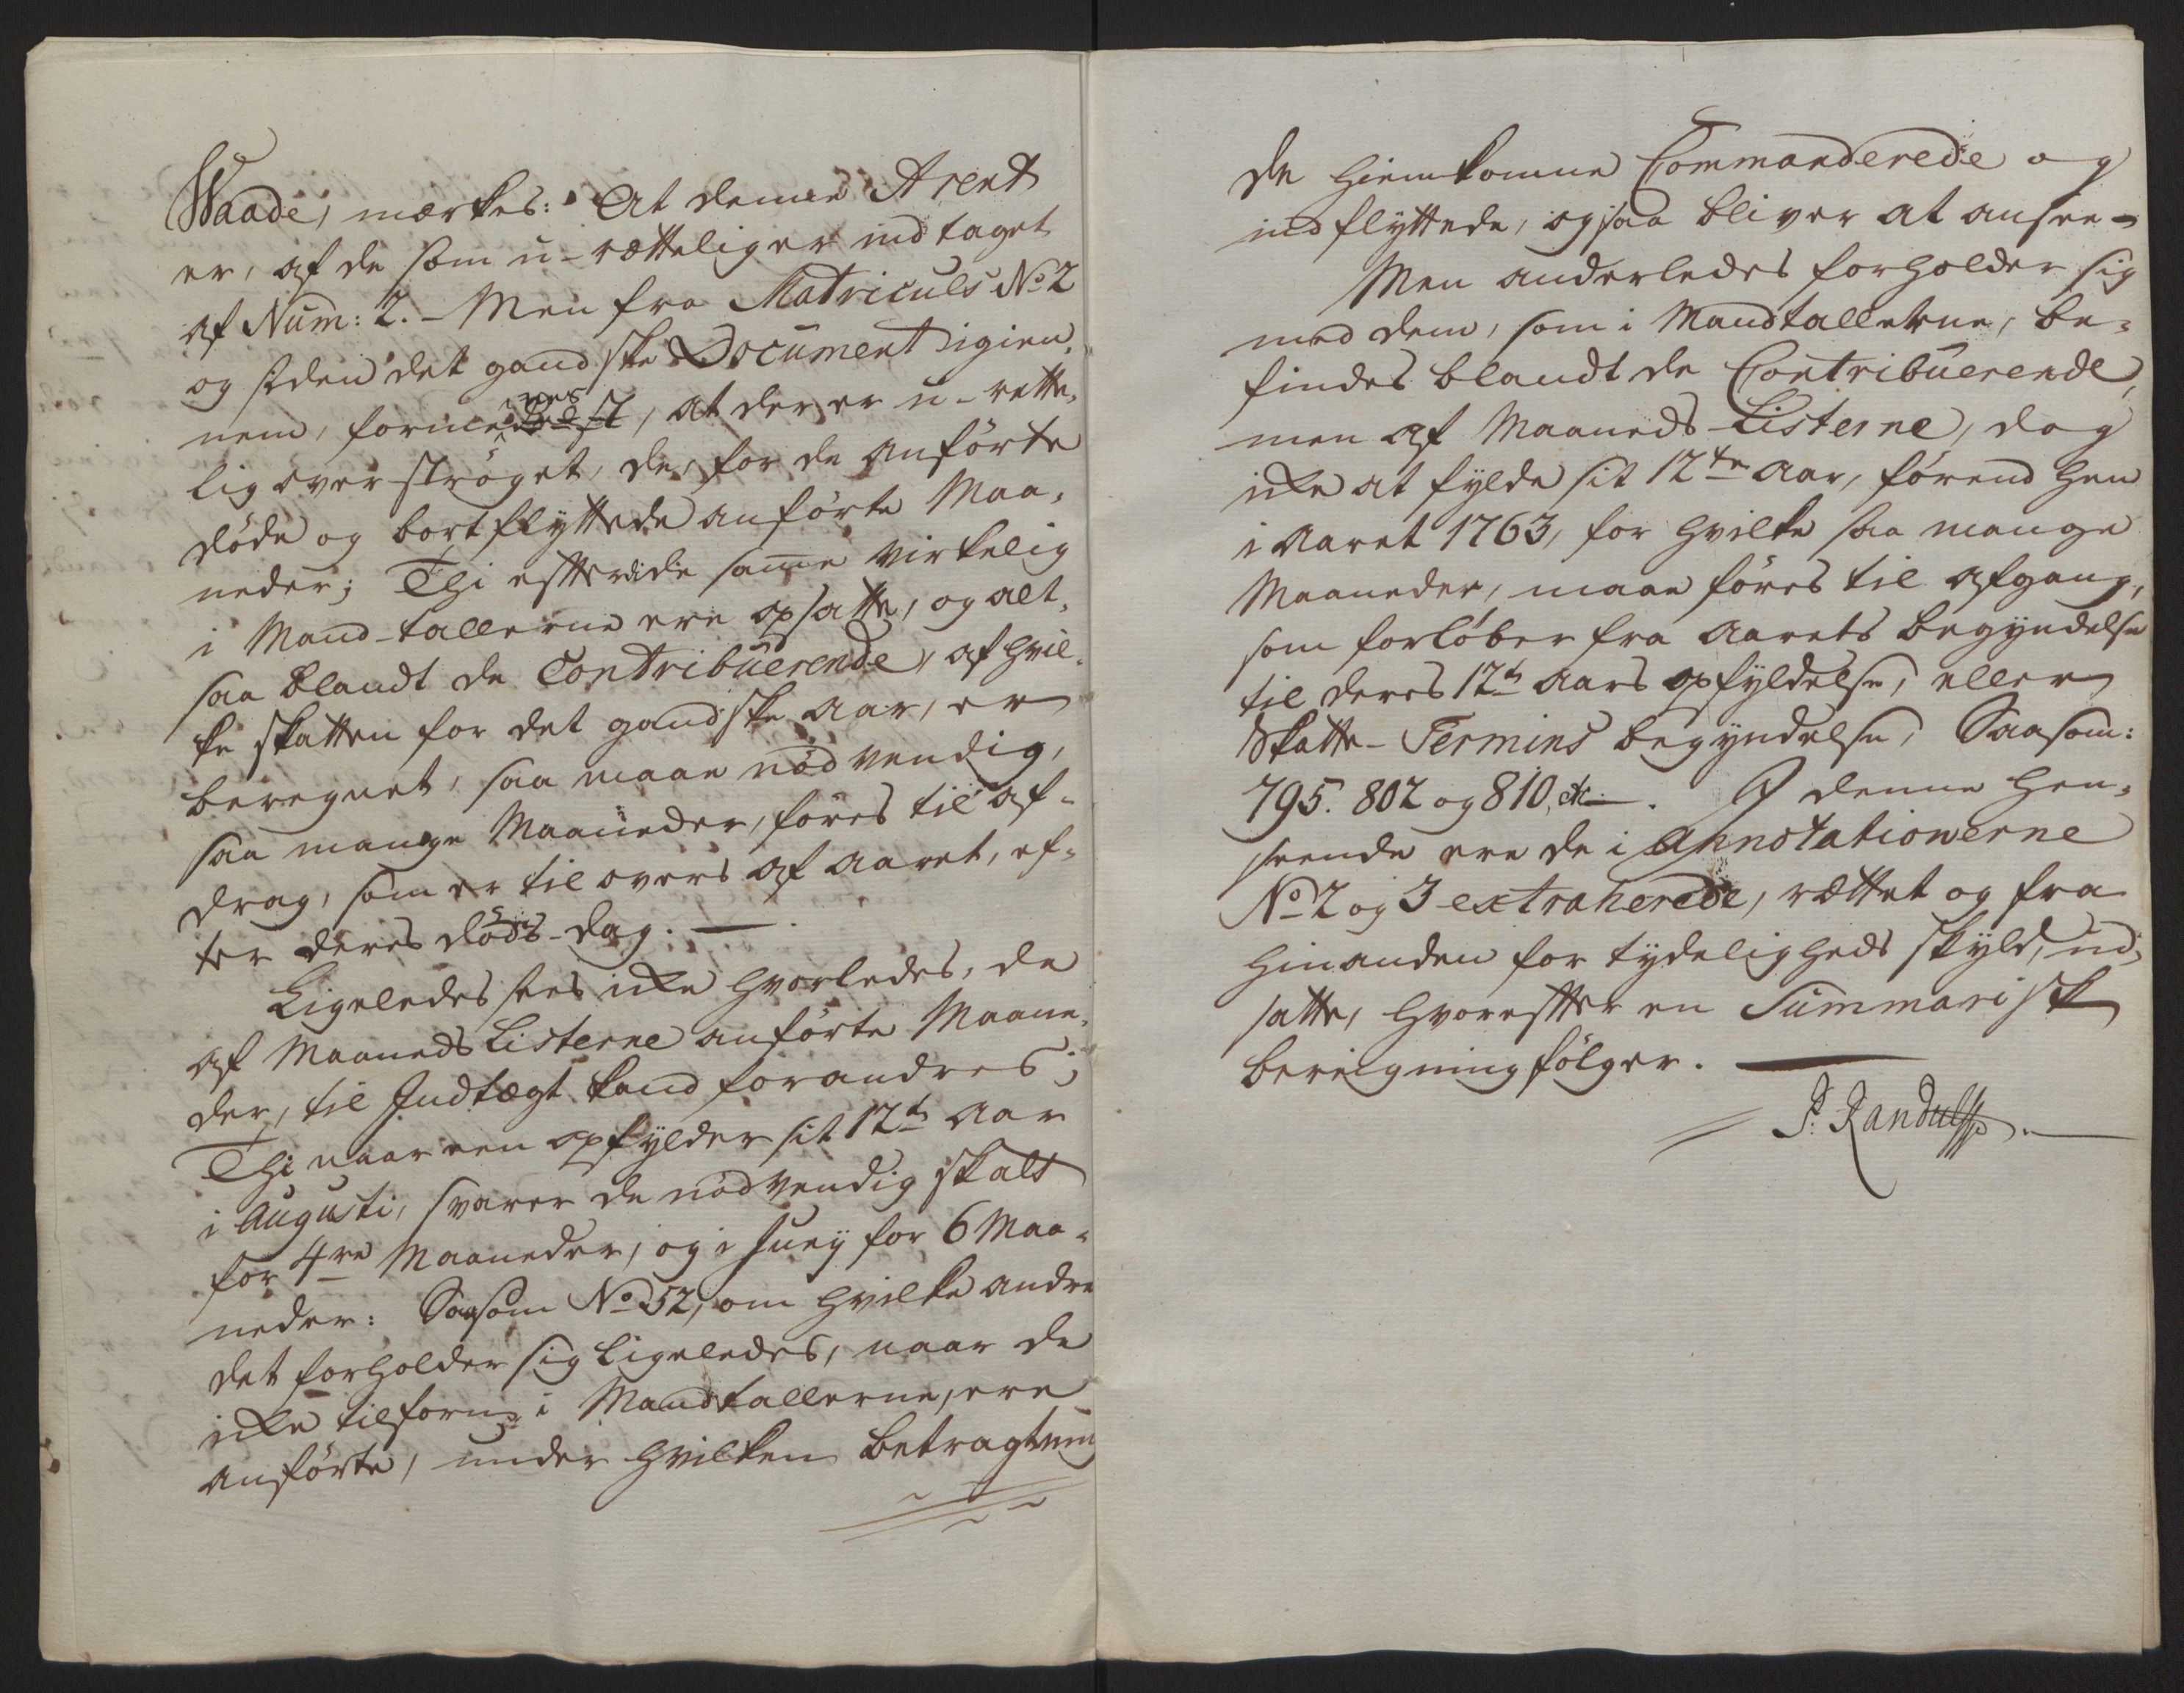 Waade, mærkes: At denne Arent
er, af de som u-rætteliger indtaget
af Num: 2. - Men fra Matriculs No 2
og siden det gandske Document igien,
nem, formeenes, at der er u-rette,
lig over strøget, de, for de anførte
døde og bortflyttede anførte Maa,
neder; Thi efterdi de same virkelig
i Mand-tallerne ere opsatte, og alt,
saa blandt de Contribuerende, af hvil,
ke skatten for det gandske Aar, er
beregnet, saa maae nødvendig,
saa mange Maaneder, føres til af-
drag, som er til overs af Aaret, ef-
ter deres døds-dag. —
Ligeledes sees icke hvorledes, de
af Maaneds Listerne anførte Maane,
der, til Indtægt kand forandres;
Thi naar een opfylder sit 12te Aar
i Augusti, svarer de nødvendig skatt
for 4re Maaneder, og i Juny for 6 Maa-
neder: Saasom No 52, om hvilke andre
det forholder sig ligeledes, naar de
icke tilforn i Mandtallerne, ere
anførte, under hvilken betragtning
de hiemkomne Commanderede og
indflyttede, ogsaa bliver at ansee -
Men anderledes forholder sig
med dem, som i Mandtallerne, be-
findes blandt de Contribuerende,
men af Maaneds-Listerne, dog
icke at fylde sit 12te Aar, førend hen
i Aaret 1763, for hvilke saa mange
Maaneder, maae føres til afgang,
som forløber fra Aarets begyndelse
til deres 12te Aars opfyldelse, eller
Skatte-Termins begyndelse, Saasom:
795. 802 og 810, etc —. I denne hen-
seende ere de i Annotationerne
No 2 og 3 extraherede, rættet og fra
hinanden for tydeligheds skyld, ud,
satte, hvorefter en Summarisk
bereigning følger. —
P: Randulff. —